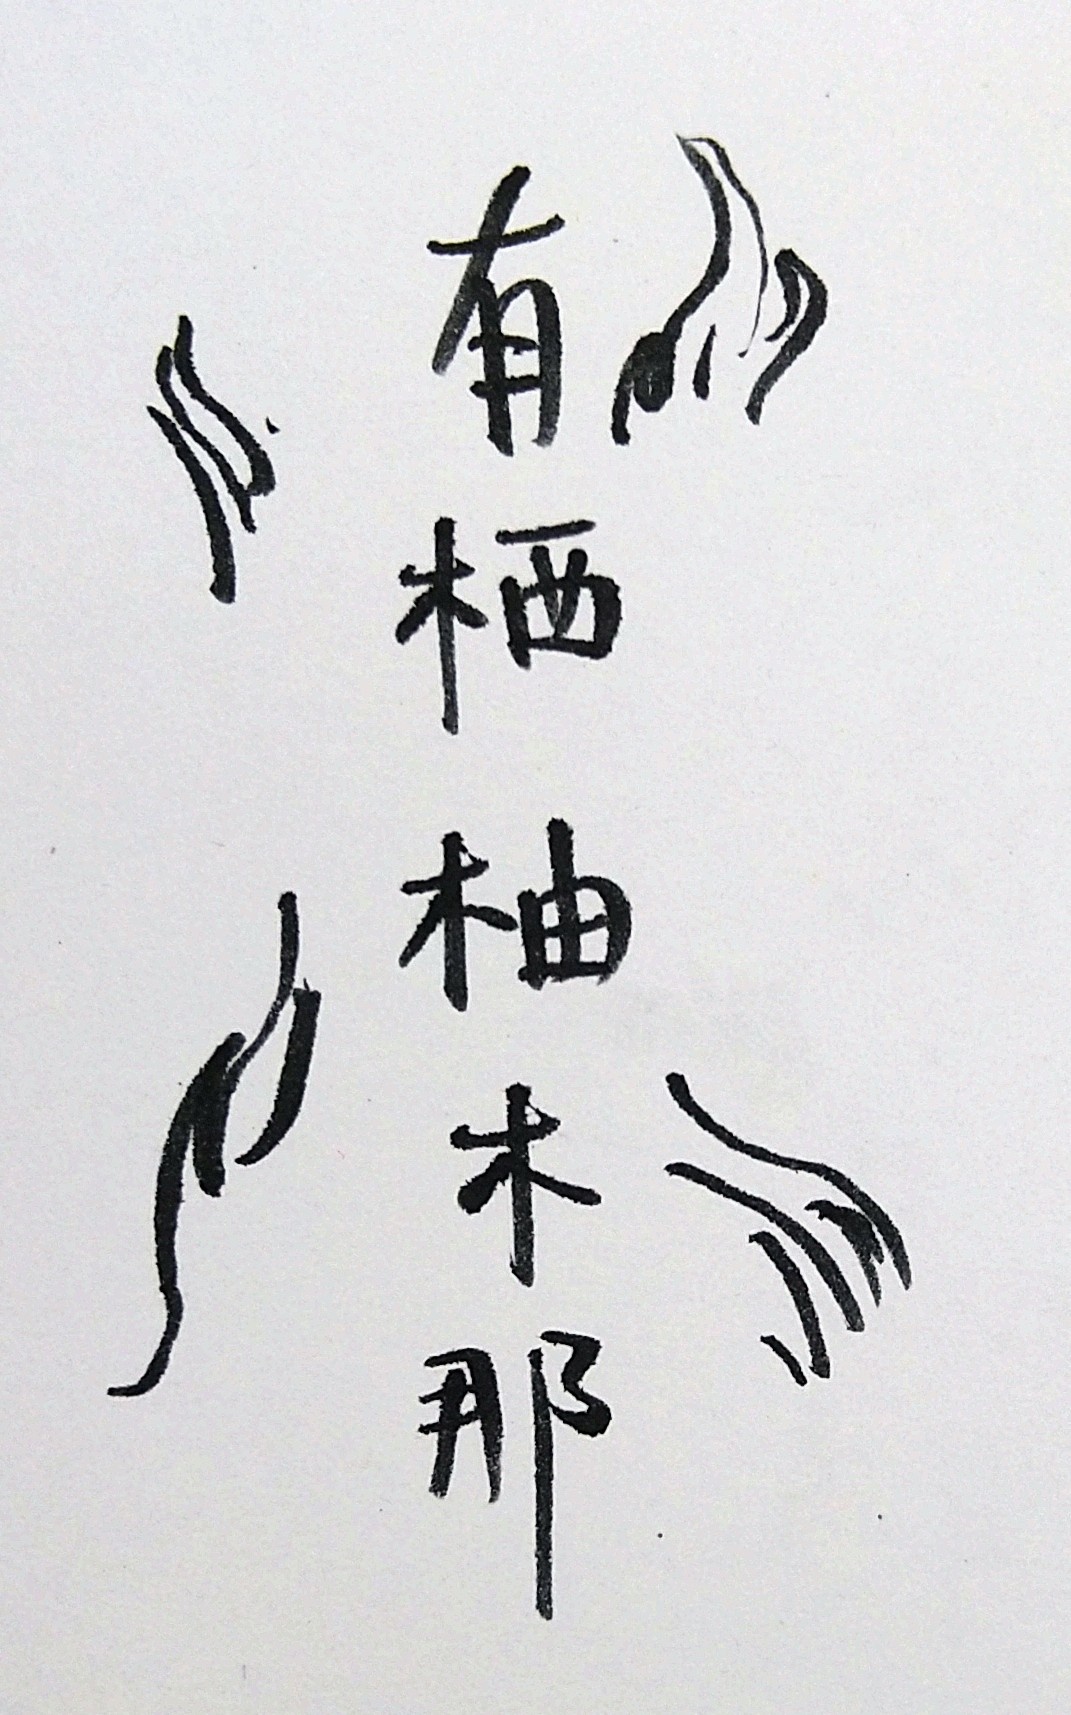 有栖柚木那